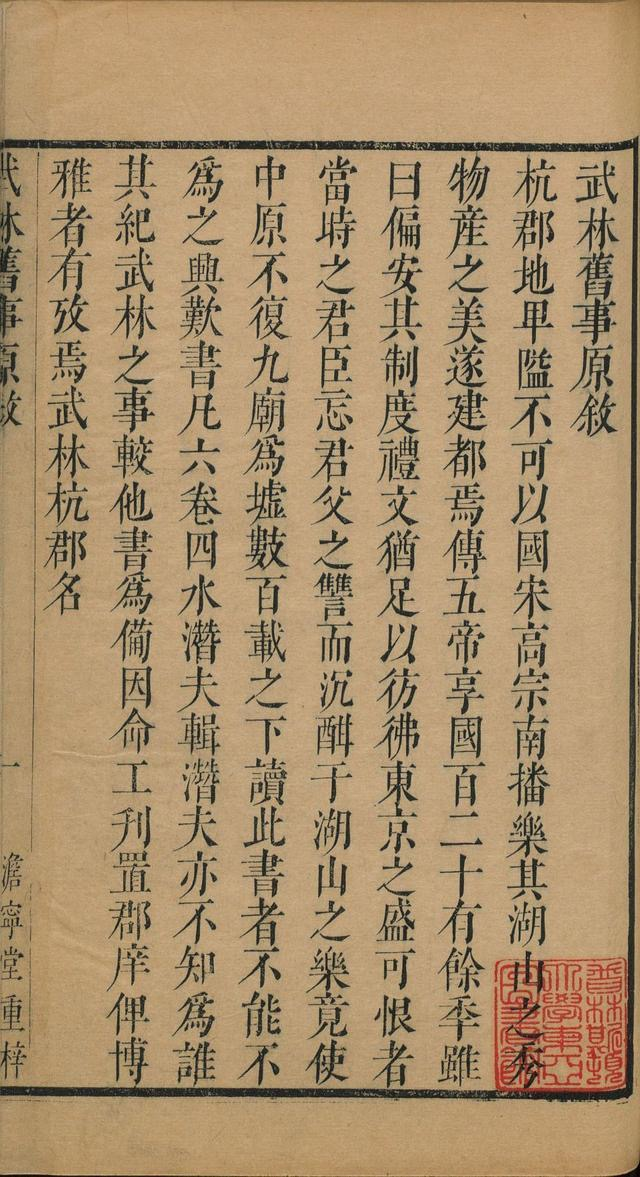 武林舊事原敘
杭郡地卑隘不可以國宋高宗南播樂其湖山之秀
物產之美遂建都焉傳五帝享國百二十有餘秊雖
曰偏安其制度禮文猶足以彷彿東京之盛可恨者
當時之君臣忘君父之讐而沉酣于湖山之樂竟使
中原不復九廟爲墟數百載之下讀此書者不能不
爲之興歎書凡六卷四水潛夫輯潛夫亦不知爲誰
其紀武林之事較他書爲備因命工刋置郡庠俾博
雅者有攷焉武林杭郡名
武林舊事原敘
一
澹寧堂重梓
普林斯頓
大學東亞